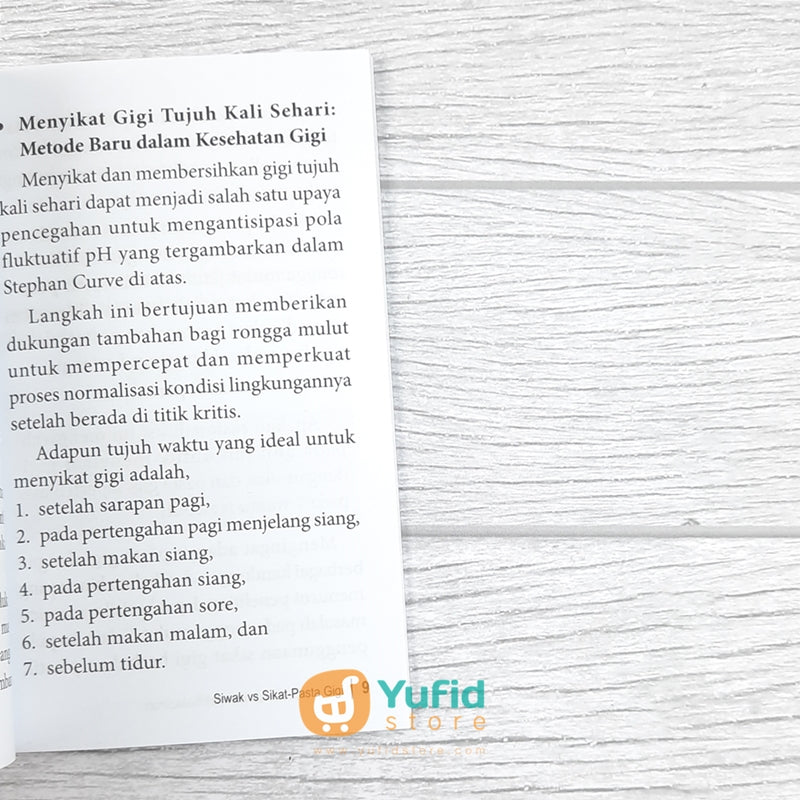 • Menyikat Gigi Tujuh Kali Sehari:
Metode Baru dalam Kesehatan Gigi
Menyikat dan membersihkan gigi tujuh
kali sehari dapat menjadi salah satu upaya
pencegahan untuk mengantisipasi pola
fluktuatif pH yang tergambarkan dalam
Stephan Curve di atas.
Langkah ini bertujuan memberikan
dukungan tambahan bagi rongga mulut
untuk mempercepat dan memperkuat
proses normalisasi kondisi lingkungannya
setelah berada di titik kritis.
Adapun tujuh waktu yang ideal untuk
menyikat gigi adalah,
1. setelah sarapan pagi,
2. pada pertengahan pagi menjelang siang,
3. setelah makan siang,
4. pada pertengahan siang,
5. pada pertengahan sore,
6. setelah makan malam, dan
7. sebelum tidur.
Siwak vs Sikat-Pasta Gigi | 9
Yufid
store
www.yufidstore.com